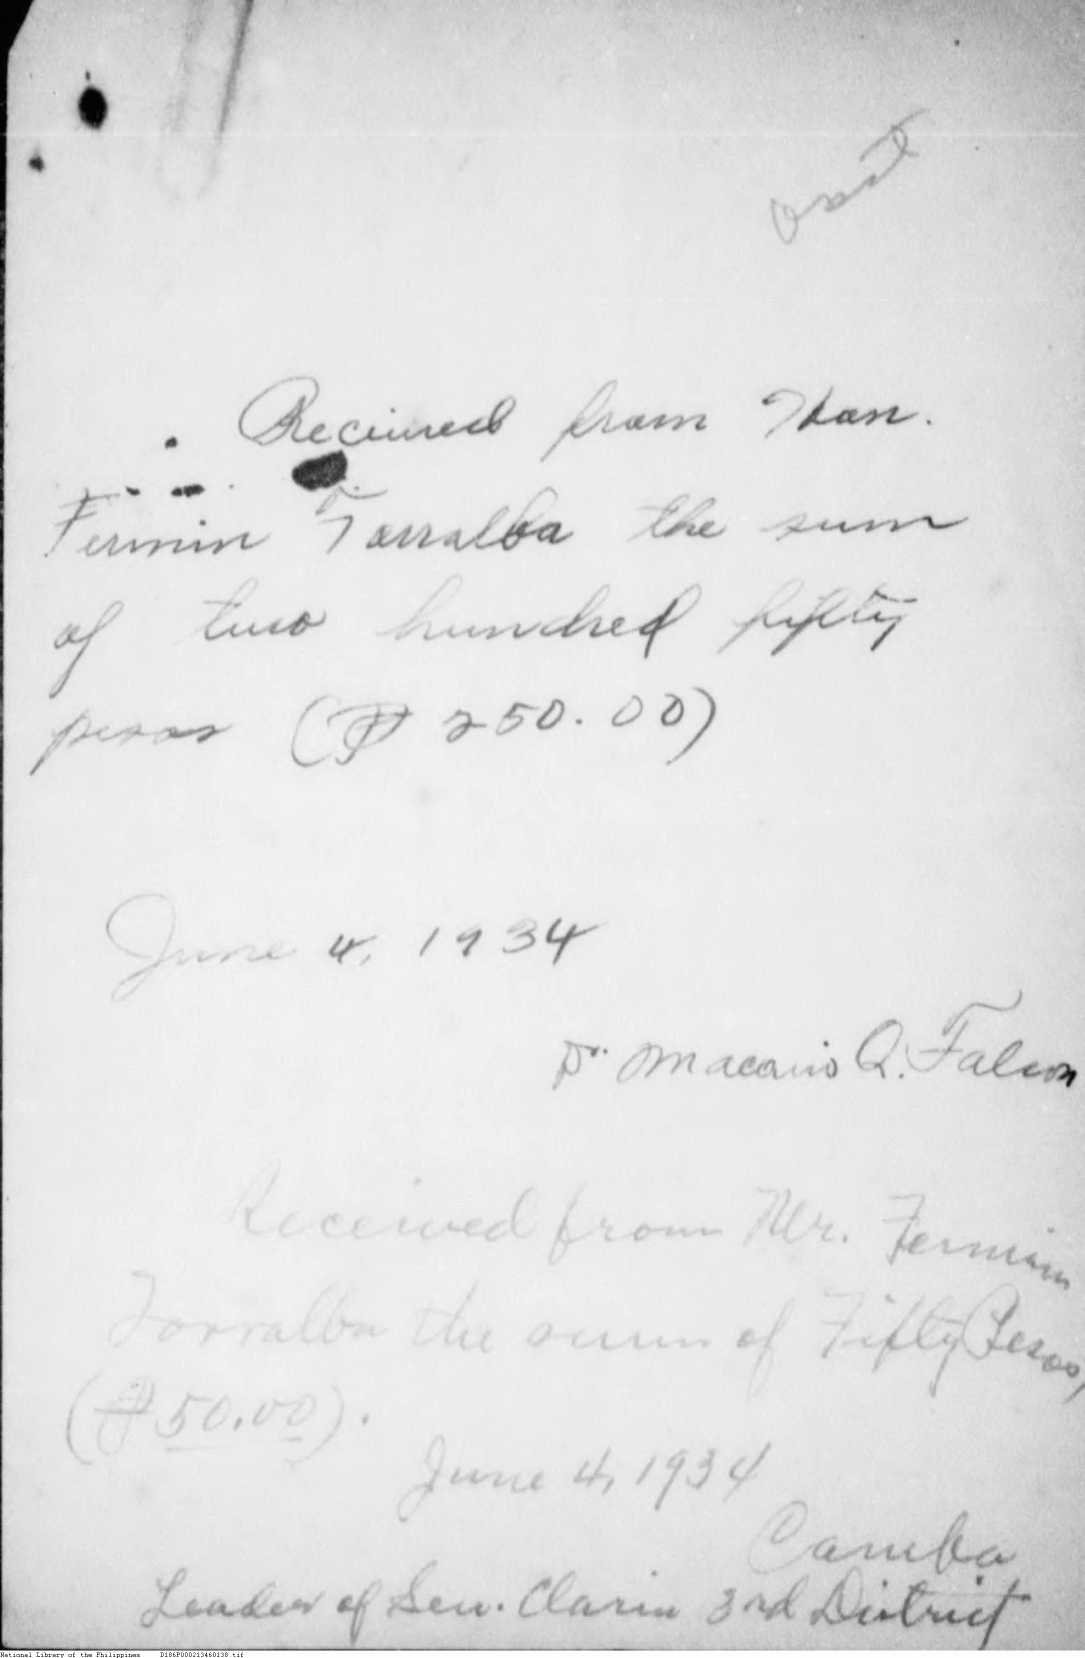 Received from Hon.
Fermin Torralba the sum
of two hundred fifty
pesos (₱ 250.00)
June 4, 1934
Dr. Macario Q. Falcon
Received from Mr. Fermin
Torralba the sum of Fifty Pesos,
(₱50.00).
June 4, 1934
Leader of Sen. Clarin 3rd District
National Library of the Philippines D186P000213460138.tif